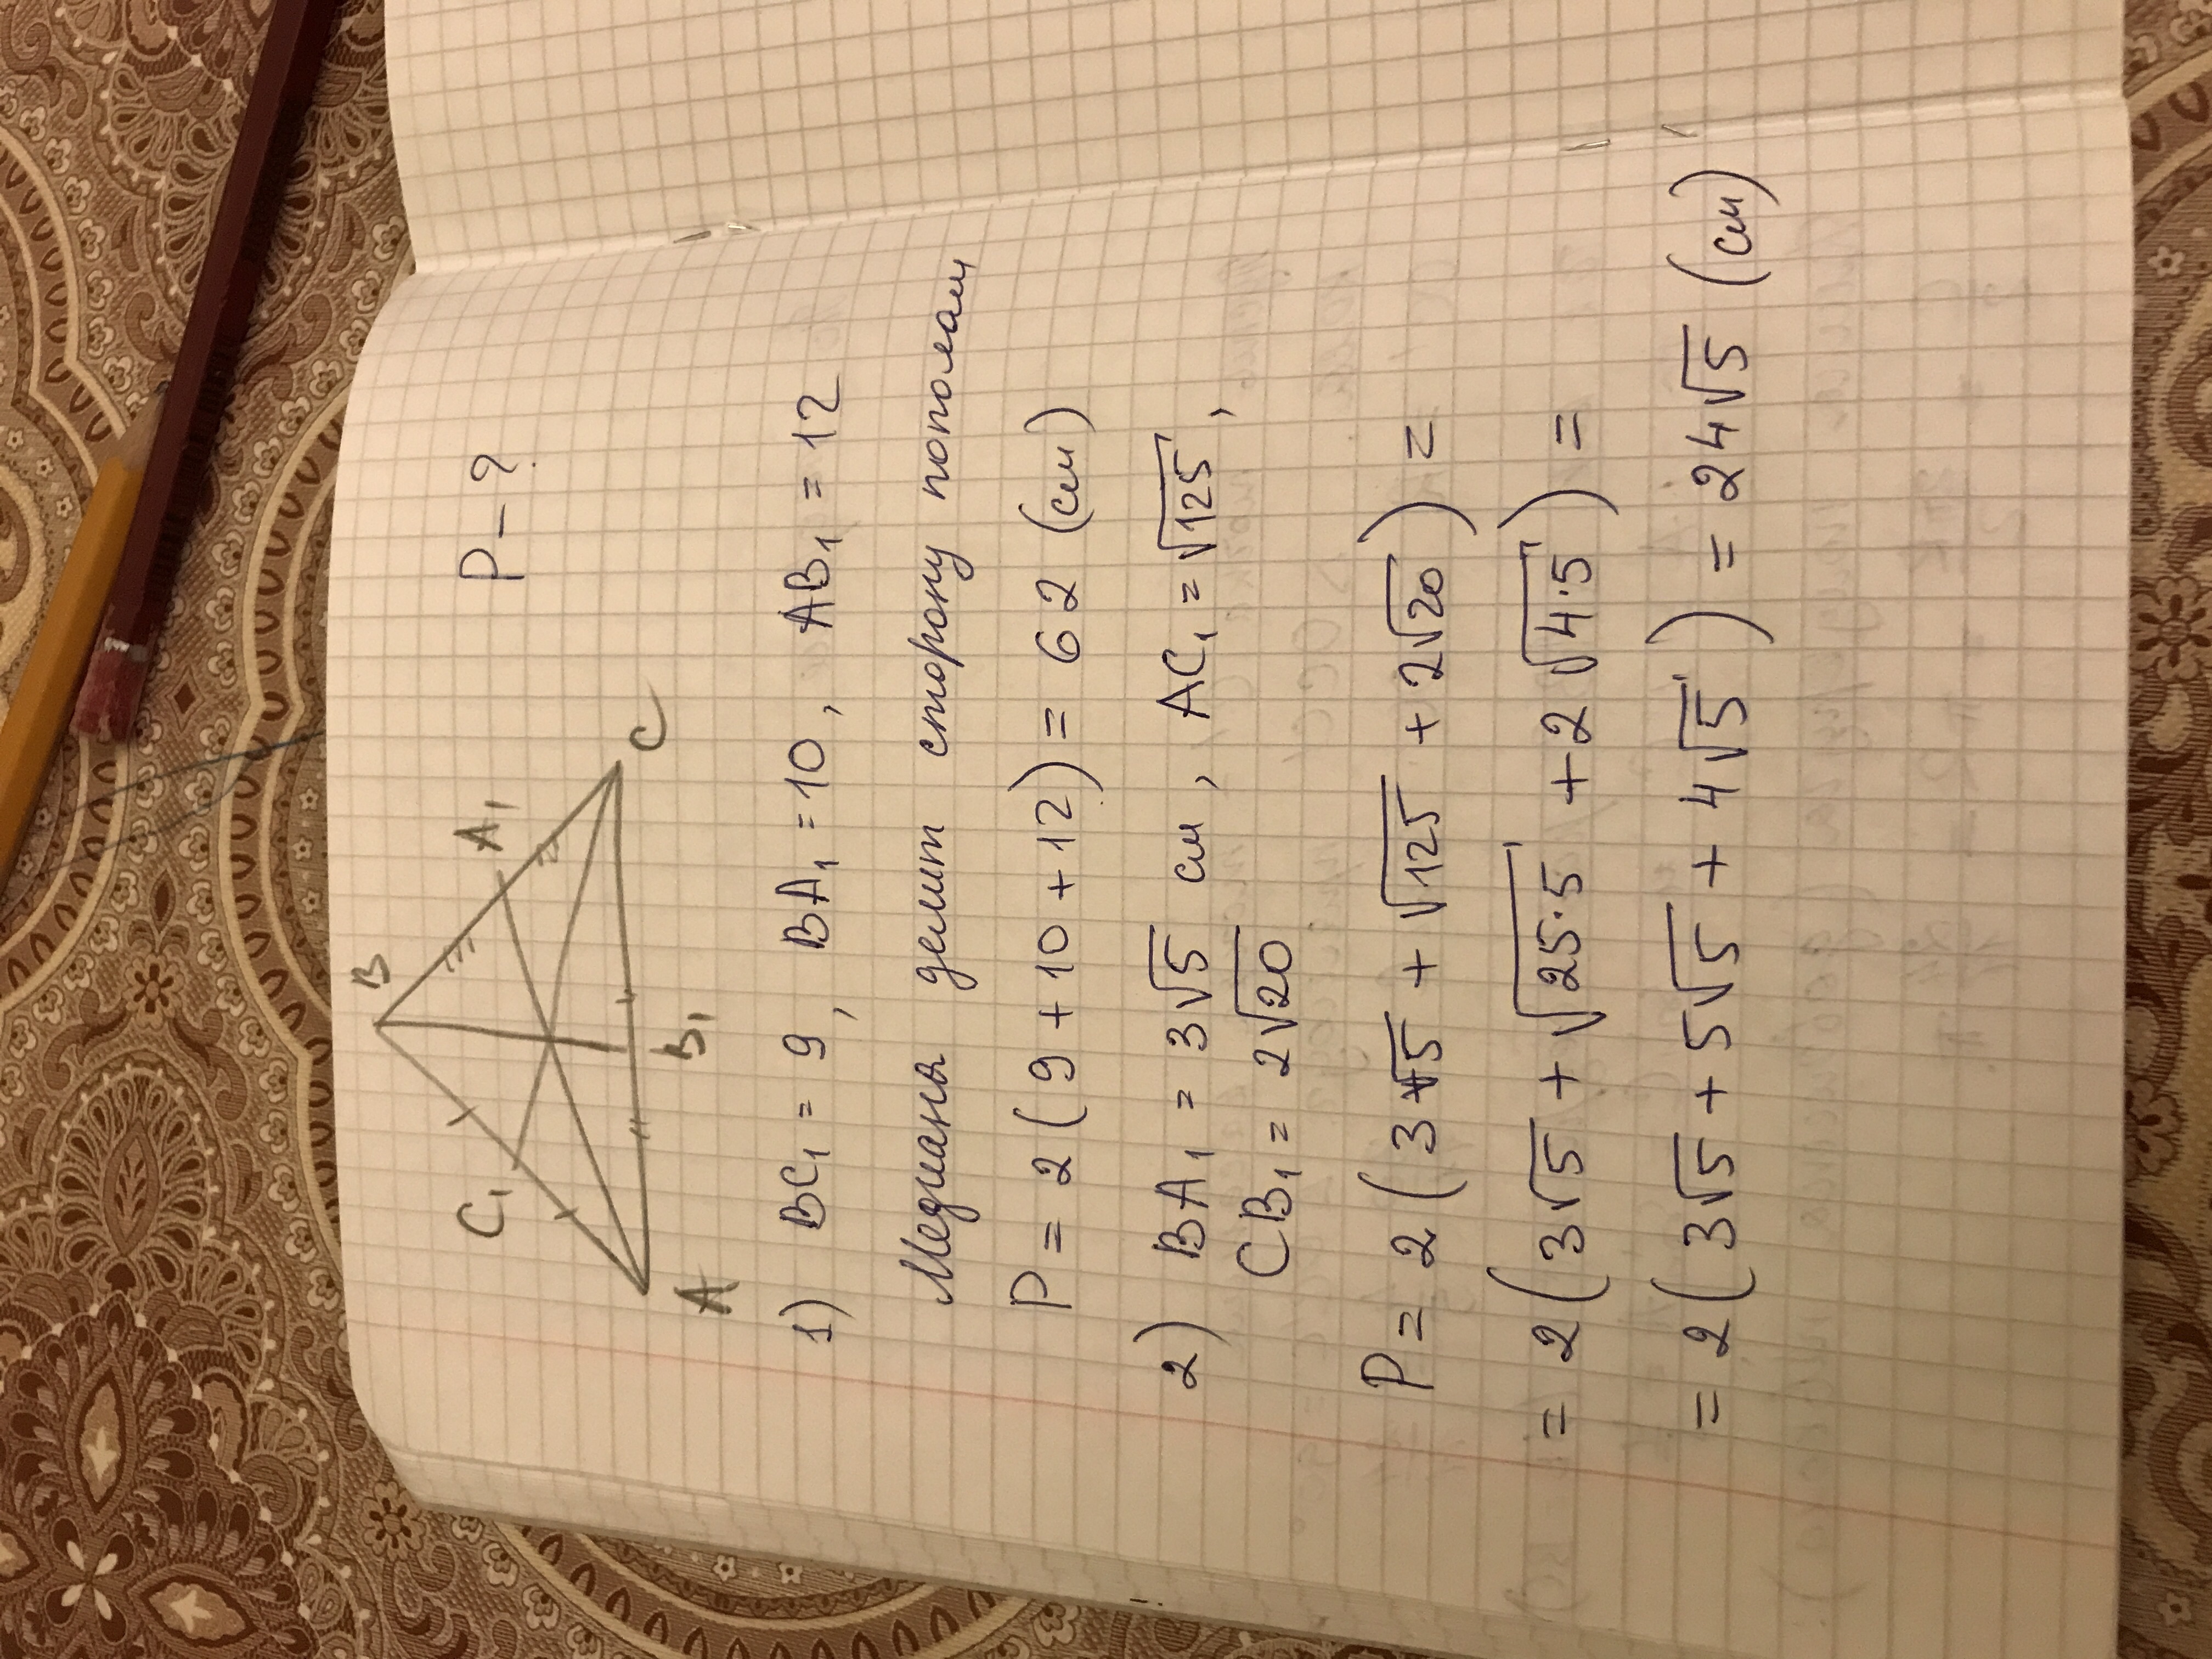 P - ?
B
C₁
A₁
A
B₁
C
1) BC₁ = 9, BA₁ = 10, AB₁ = 12
Медианы делит сторону пополам
P = 2 (9 + 10 + 12) = 62 (см)
2) BA₁ = 3√5 см, AC₁ = √125,
CB₁ = 2√20
P = 2 (3√5 + √125 + 2√20) =
= 2 (3√5 + √25·5 + 2√4·5) =
= 2 (3√5 + 5√5 + 4√5) = 24√5 (см)